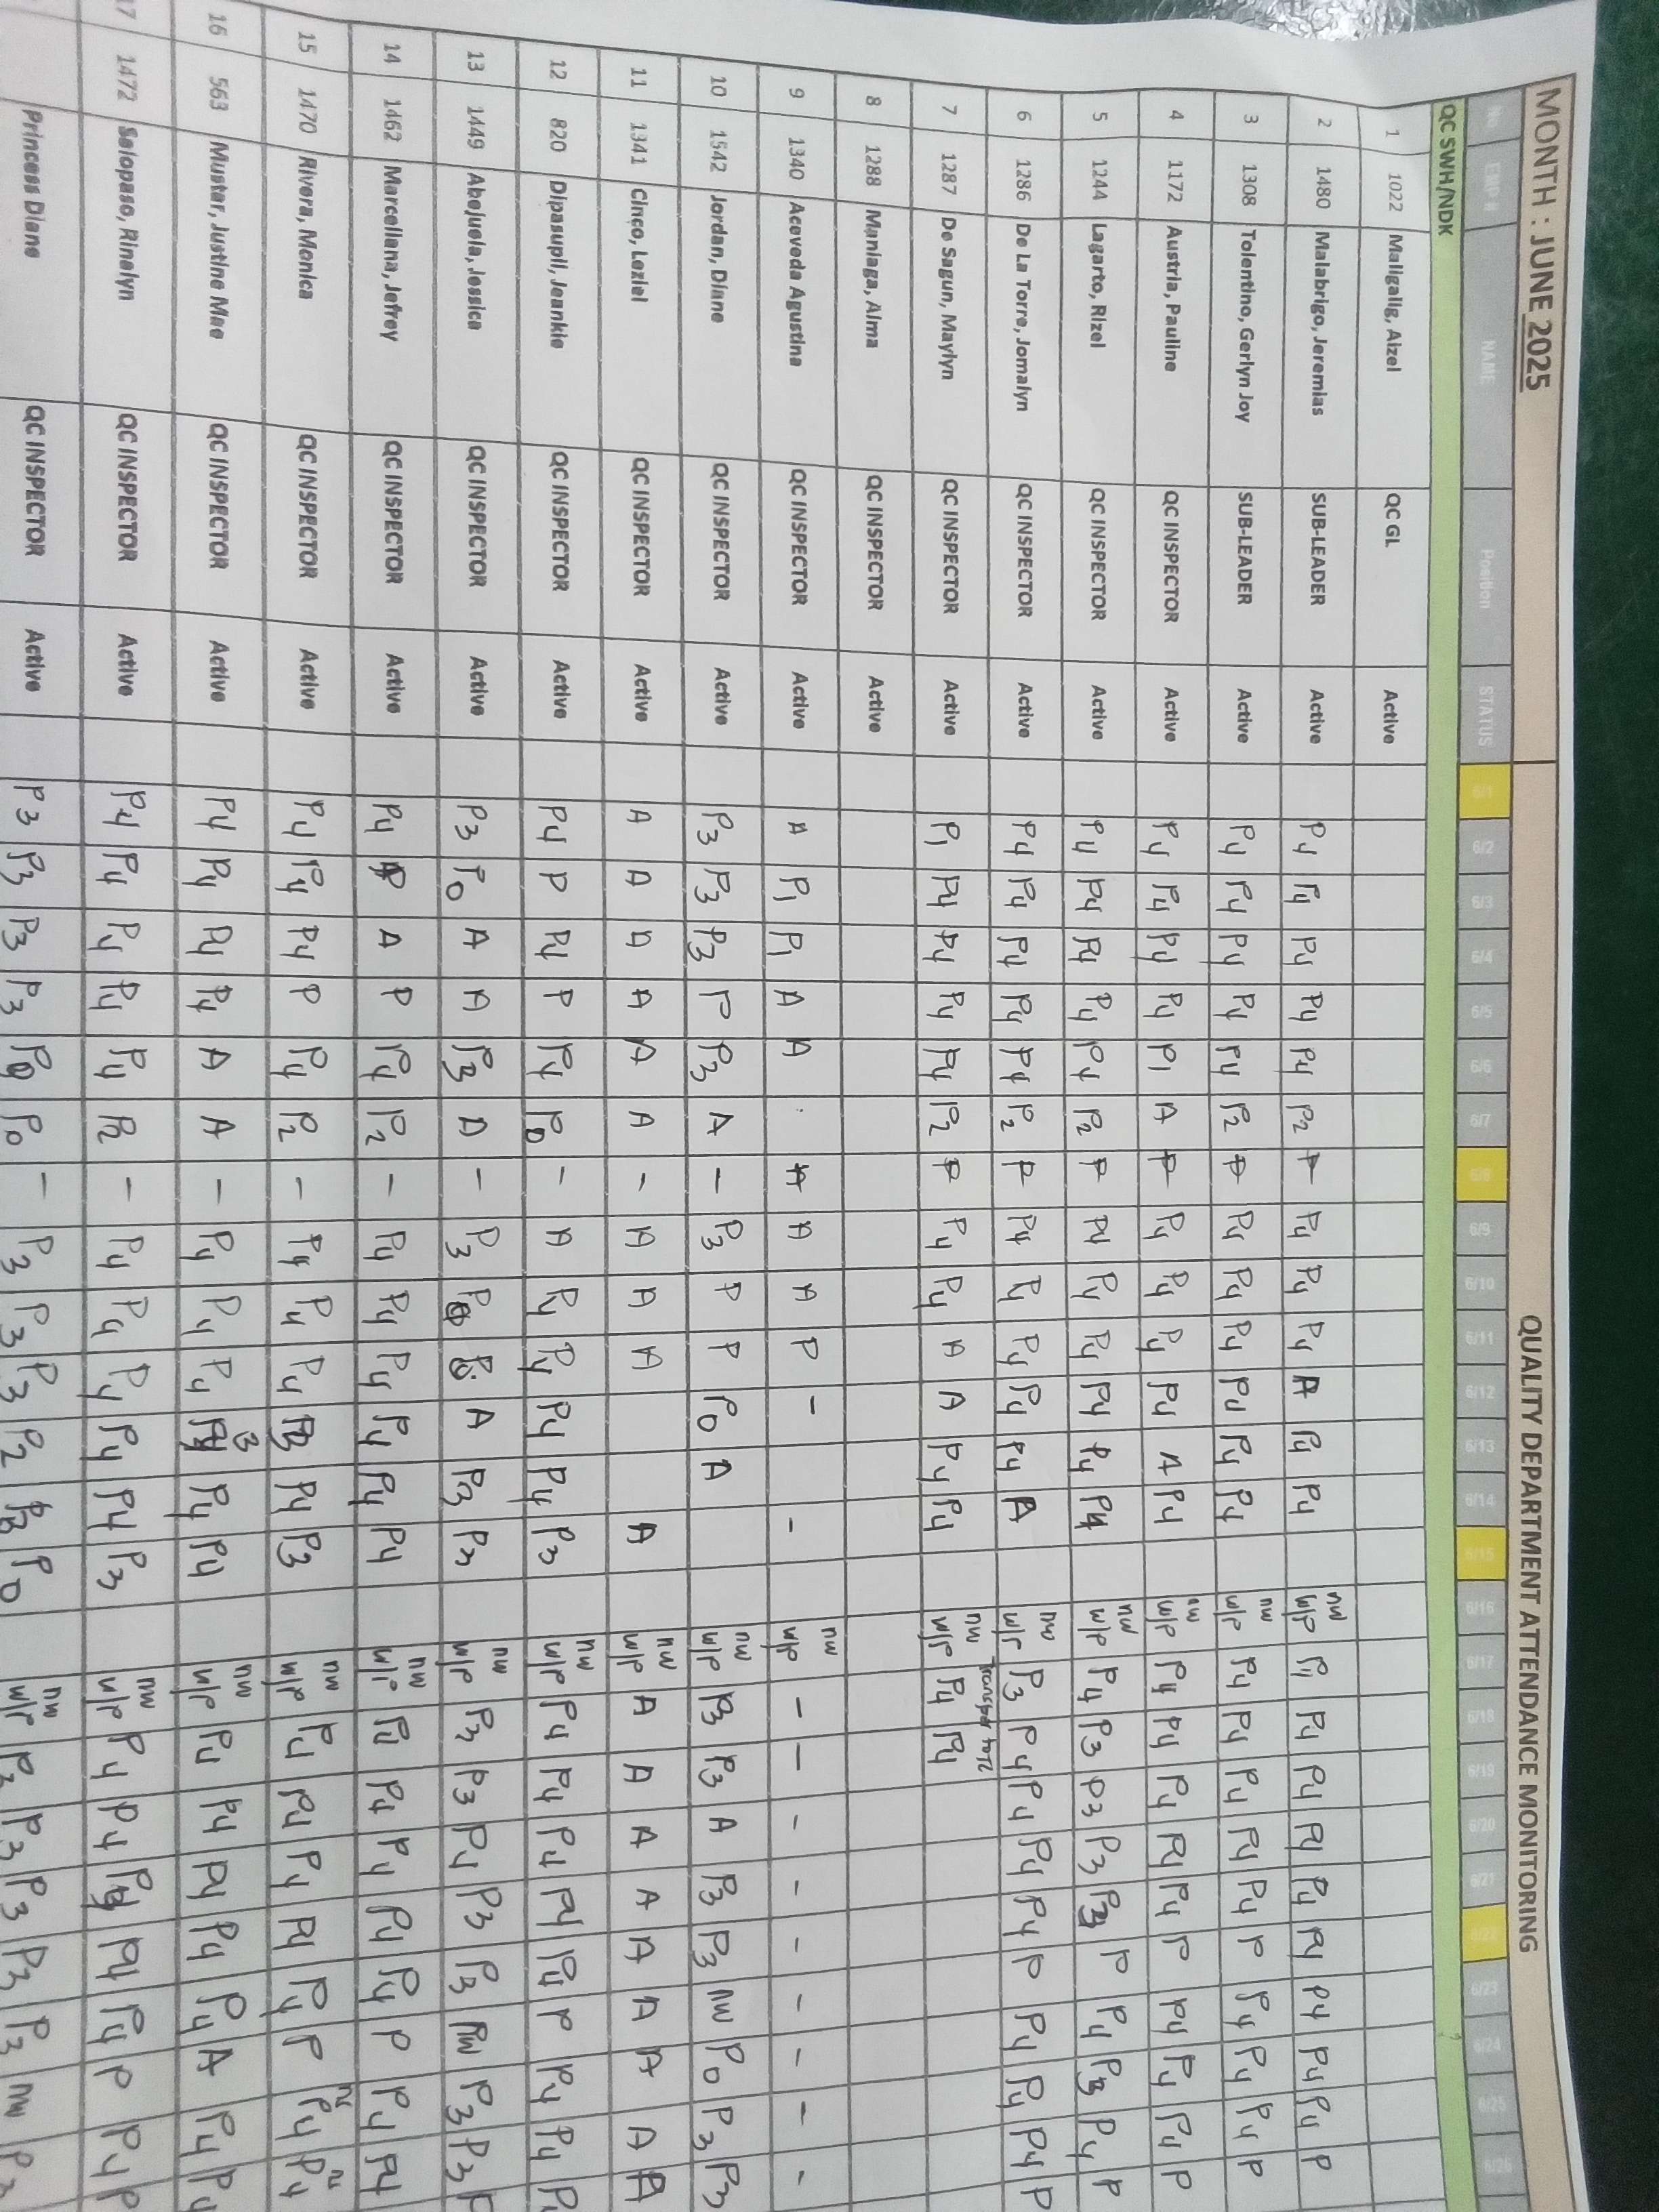 MONTH : JUNE 2025 QUALITY DEPARTMENT ATTENDANCE MONITORING
No EMP # NAME Position STATUS 6/1 6/2 6/3 6/4 6/5 6/6 6/7 6/8 6/9 6/10 6/11 6/12 6/13 6/14 6/15 6/16 6/17 6/18 6/19 6/20 6/21 6/22 6/23 6/24 6/25 6/26
QC SWH/NDK
1 1022 Maligalig, Aizel QC GL Active
2 1480 Malabrigo, Jeremias SUB-LEADER Active P4 P4 P4 P4 P4 P2 P P4 P4 P4 A P4 P4 nw w/p P4 P4 P4 P4 P4 P4 P4 P4 P4 P
3 1308 Tolentino, Gerlyn Joy SUB-LEADER Active P4 P4 P4 P4 P4 P2 P P4 P4 P4 P4 P4 P4 nw w/p P4 P4 P4 P4 P4 P P4 P4 P4 P
4 1172 Austria, Pauline QC INSPECTOR Active P4 P4 P4 P4 P1 A P P4 P4 P4 P4 A P4 nw w/p P4 P4 P4 P4 P4 P P4 P4 P4 P
5 1244 Lagarto, Rizel QC INSPECTOR Active P4 P4 P4 P4 P4 P2 P P4 P4 P4 P4 P4 P4 nw w/p P4 P3 P3 P3 P3 P P4 P3 P4 P
6 1286 De La Torre, Jomalyn QC INSPECTOR Active P4 P4 P4 P4 P4 P2 P P4 P4 P4 P4 P4 A nw w/p P3 P4 P4 P4 P4 P P4 P4 P4 P
7 1287 De Sagun, Maylyn QC INSPECTOR Active P1 P4 P4 P4 P4 P2 P P4 P4 A A P4 P4 nw w/p P4 P4 Transper to TZ
8 1288 Maniaga, Alma QC INSPECTOR Active
9 1340 Aceveda Agustina QC INSPECTOR Active A P1 P1 A A A A A P - - nw w/p - - - - - - - - -
10 1542 Jordan, Diane QC INSPECTOR Active P3 P3 P3 P P3 A - P3 P P P0 A nw w/p P3 P3 A P3 P3 nw P0 P3 P3
11 1341 Cinco, Leziel QC INSPECTOR Active A A A A A A - A A A A nw w/p A A A A A A A A A
12 820 Dipasupil, Jeankie QC INSPECTOR Active P4 P P4 P P4 P0 - A P4 P4 P4 P4 P3 nw w/p P4 P4 P4 P4 P4 P P4 P4
13 1449 Abejuela, Jessica QC INSPECTOR Active P3 P0 A A P3 A - P3 P0 A P3 P3 nw w/p P3 P3 P4 P3 P3 nw P3 P3
14 1462 Marcellana, Jefrey QC INSPECTOR Active P4 P A P P4 P2 - P4 P4 P4 P4 P4 P4 nw w/p P4 P4 P4 P4 P4 P P4 P4
15 1470 Rivera, Monica QC INSPECTOR Active P4 P4 P4 P P4 P2 - P4 P4 P4 P3 P4 P3 nw w/p P4 P4 P4 P4 P4 P P4 P4
16 563 Mustar, Justine Mae QC INSPECTOR Active P4 P4 P4 P4 A A - P4 P4 P4 P3 P4 P4 nw w/p P4 P4 P4 P4 P4 A P4 P4
17 1472 Salopaso, Rinalyn QC INSPECTOR Active P4 P4 P4 P4 P4 P2 - P4 P4 P4 P4 P4 P3 nw w/p P4 P4 P4 P4 P P4 P
Princess Diane QC INSPECTOR Active P3 P3 P3 P3 P0 - P3 P3 P3 P2 P3 P0 nw w/p P3 P3 P3 P3 P3 nw P3